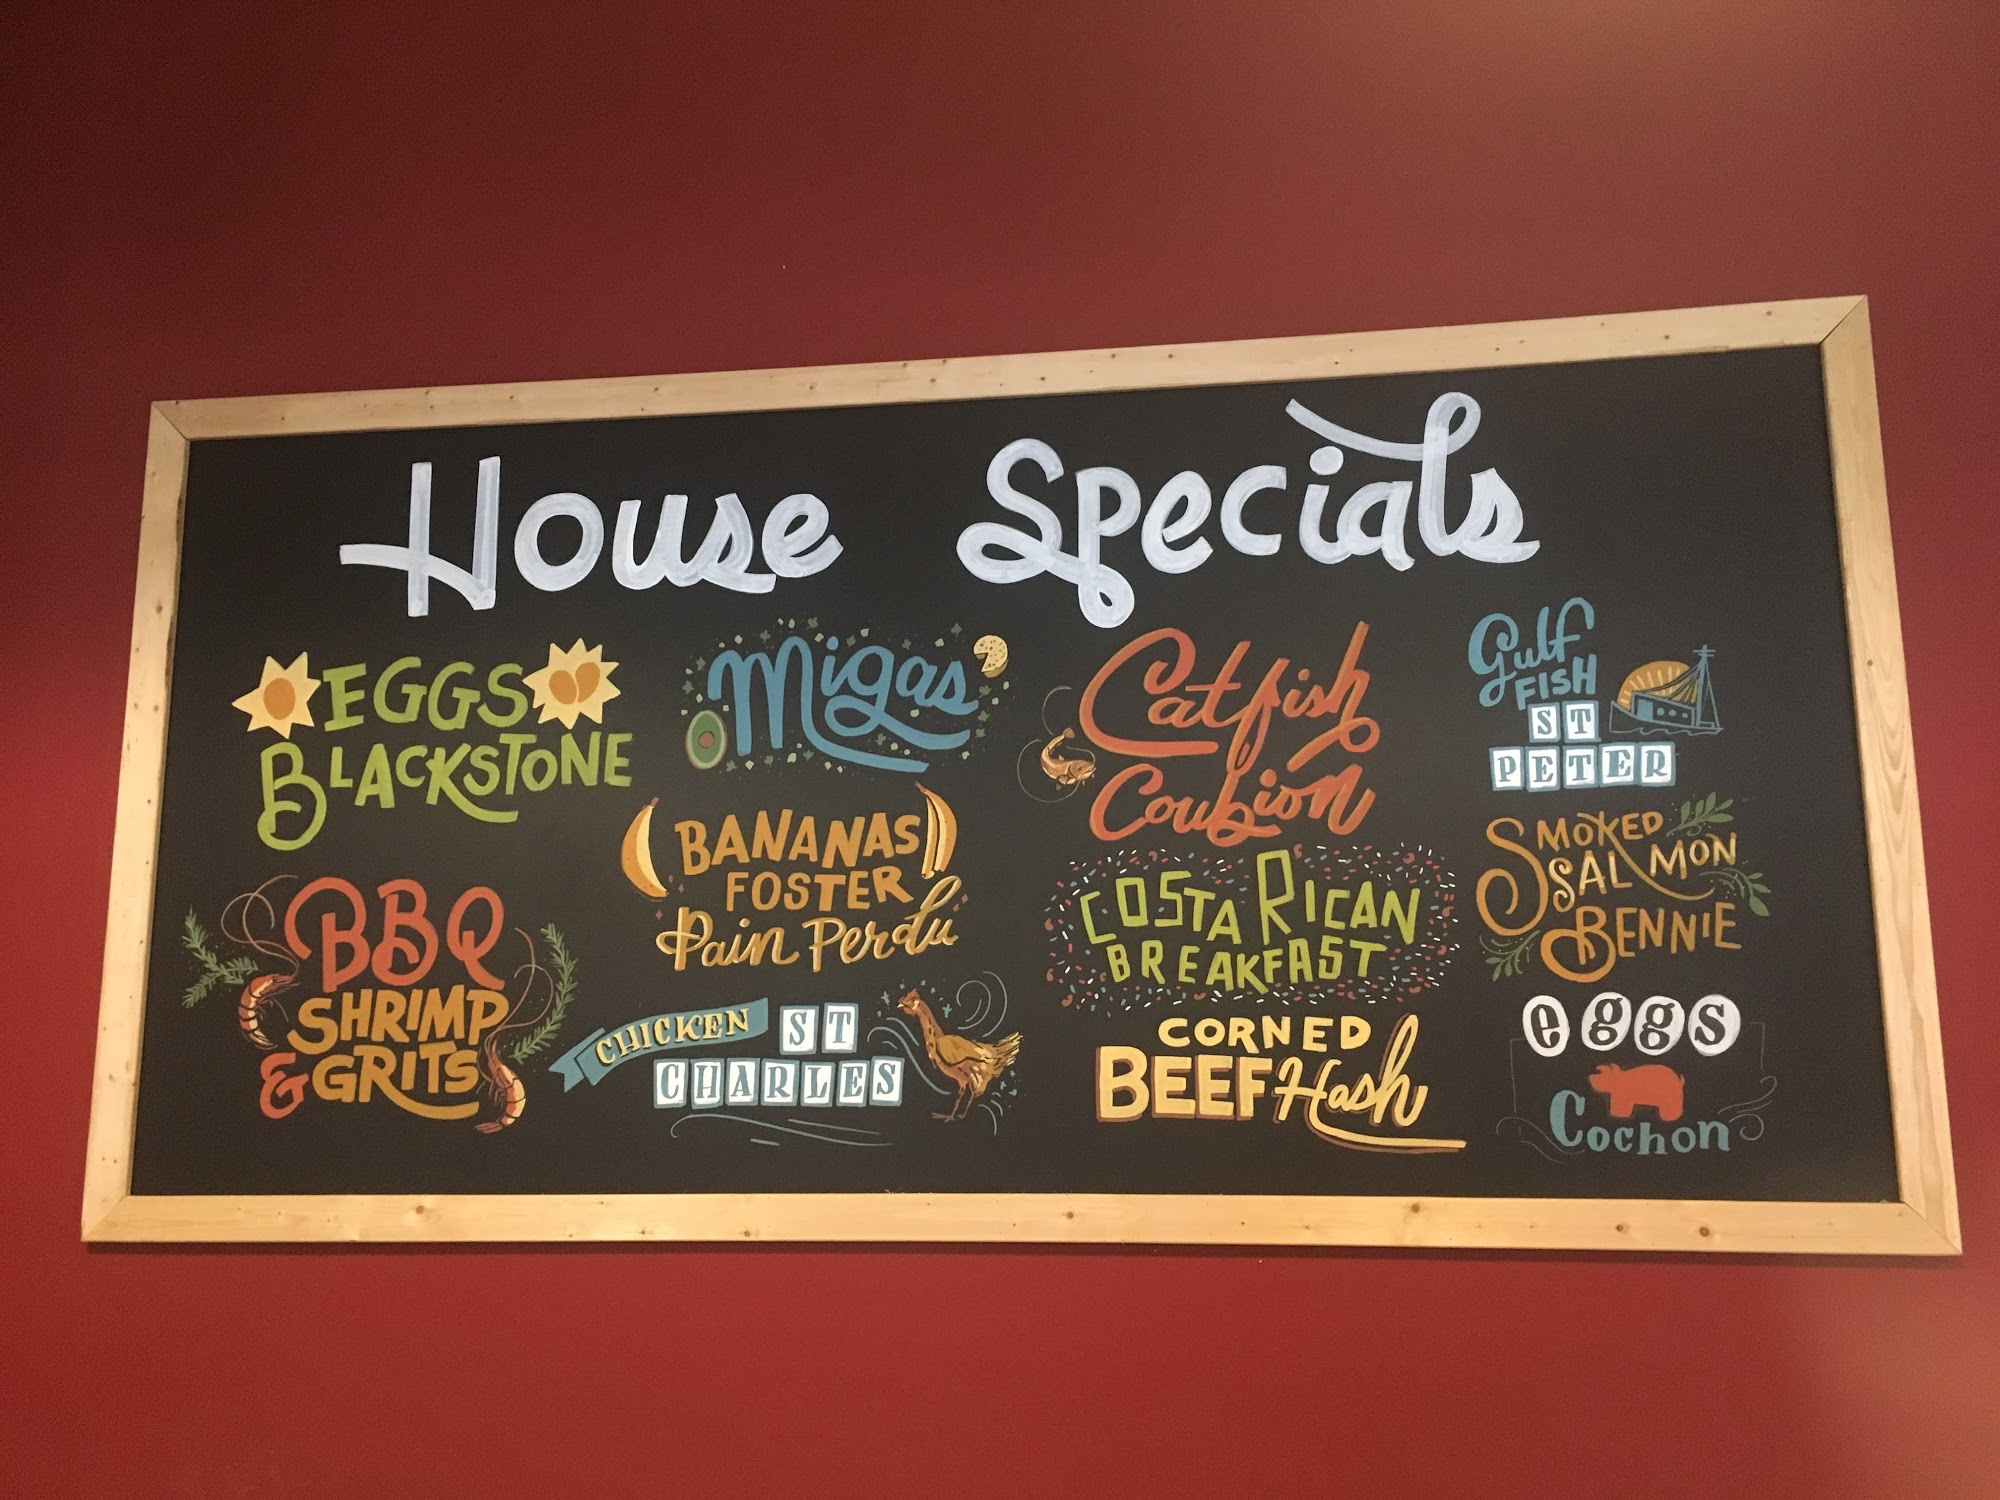 House Specials
EGGS
BLACKSTONE
BBQ
SHRIMP
& GRITS
Migas
BANANAS
FOSTER
Pain Perdu
CHICKEN ST
CHARLES
Catfish
Coubion
COSTA RICAN
BREAKFAST
CORNED
BEEF Hash
Gulf
FISH
ST
PETER
SMOKED
SALMON
BENNIE
eggs
Cochon